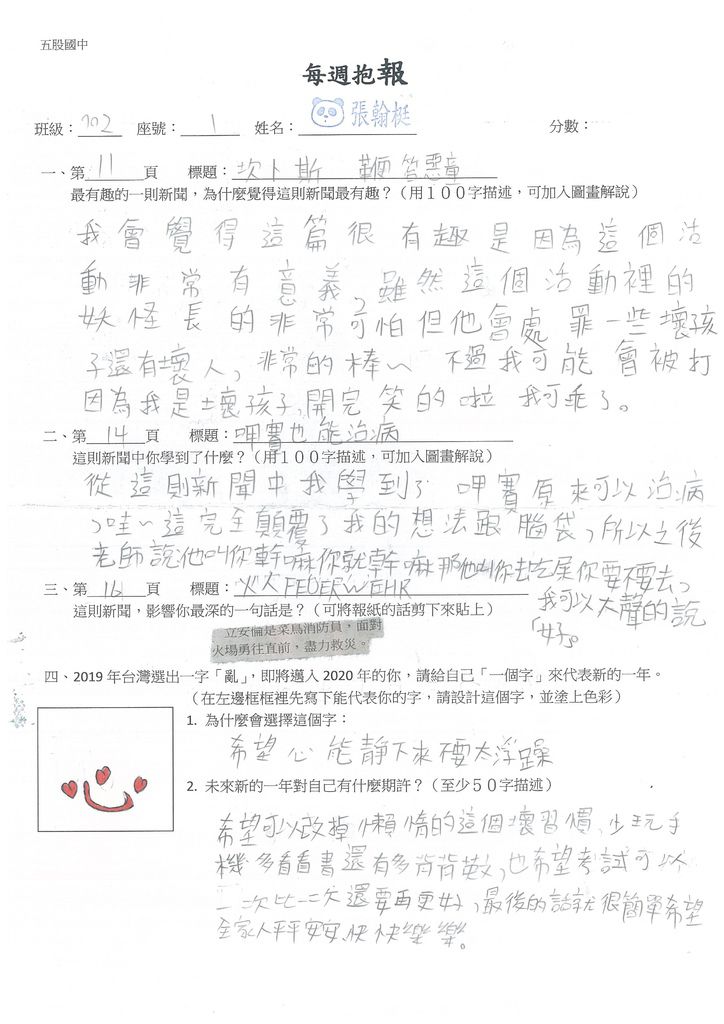 五股國中
每週抱報
班級：702 座號：1 姓名：張翰梃 分數：
一、第11頁 標題：坎卜斯 鞭笞惡童
最有趣的一則新聞，為什麼覺得這則新聞最有趣？（用１００字描述，可加入圖畫解說）
我會覺得這篇很有趣是因為這個活
動非常有意義，雖然這個活動裡的
妖怪長的非常可怕但他會處罪一些壞孩
子還有壞人，非常的棒~ 不過我可能會被打
因為我是壞孩子，開完笑的啦 我可乖了。
二、第14頁 標題：呷賽也能治病
這則新聞中你學到了什麼？（用１００字描述，可加入圖畫解說）
從這則新聞中我學到了呷賽原來可以治病
，哇~這完全顛覆了我的想法跟腦袋，所以之後
老師說他叫你幹嘛你就幹嘛那他叫你去吃屎你要不要去，
我可以大聲的說
「好」。
三、第16頁 標題：火火FEUERWEHR
這則新聞，影響你最深的一句話是？（可將報紙的話剪下來貼上）
立安倫是菜鳥消防員，面對
火場勇往直前，盡力救災。
四、2019 年台灣選出一字「亂」，即將邁入 2020 年的你，請給自己「一個字」來代表新的一年。
（在左邊框框裡先寫下能代表你的字，請設計這個字，並塗上色彩）
1. 為什麼會選擇這個字：
希望心能靜下來不要太浮躁
2. 未來新的一年對自己有什麼期許？（至少５０字描述）
希望可以改掉懶惰的這個壞習慣、少玩手
機多看看書還有多背背英文，也希望考試可以
一次比一次還要再更好，最後的話就很簡單希望
全家人平平安安、快快樂樂。